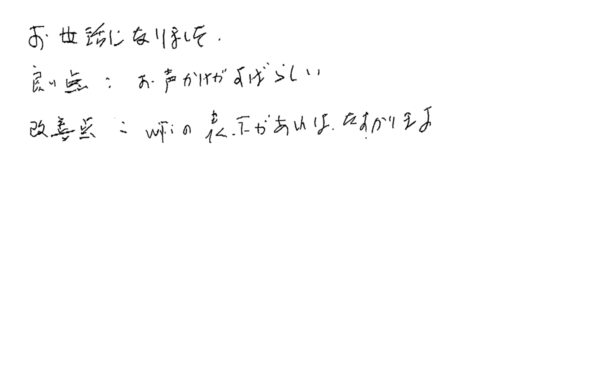 お世話になりました.
良い点：お声かけがすばらしい
改善点：wifiの表示があれば、たすかります